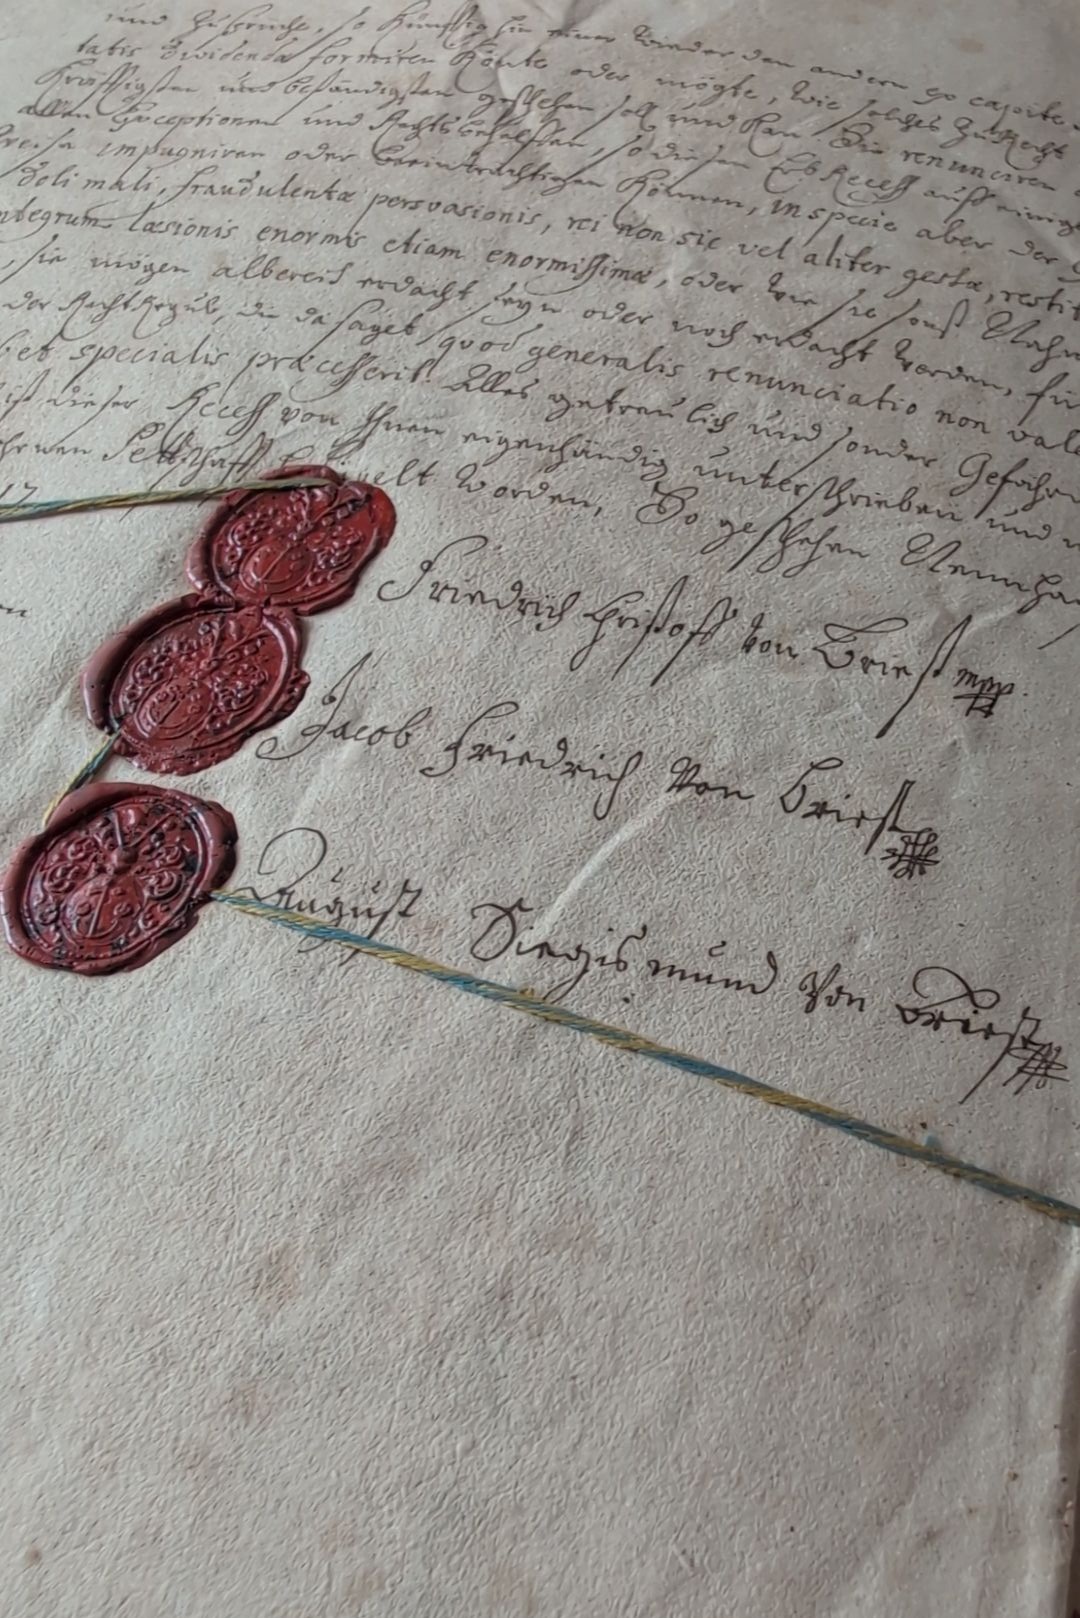 und Zusprüche, so künfftig hin einer wieder den andern ex capite
tatis dividendæ formiren könte oder mögte, wie solches zu Recht
kräfftigsten und beständigsten geschehen soll und kan. Sie renunciren
allen Exceptionen und Rechtsbehelffen, so diesen Erb Recess auff einige
Weise impugniren oder beeinträchtigen können, in specie aber der
doli mali, fraudulentæ persvasionis, rei non sic vel aliter gestæ, restit
integrum læsionis enormis etiam enormissimæ, oder wie sie sonst Nahm
, sie mögen albereit erdacht seyn oder noch erdacht werden, für
der Rechts Regul, die da saget, quod generalis renunciatio non vale
et specialis præcesserit. Alles getreulich und sonder Gefehr
ist dieser Recess von Ihnen eigenhändig unterschrieben und
Pettschafft besiegelt worden, So geschehen Nennha
17
en
Friedrich Christoff von Briest mpp.
Jacob Friedrich von Briest
August Siegismund von Briest